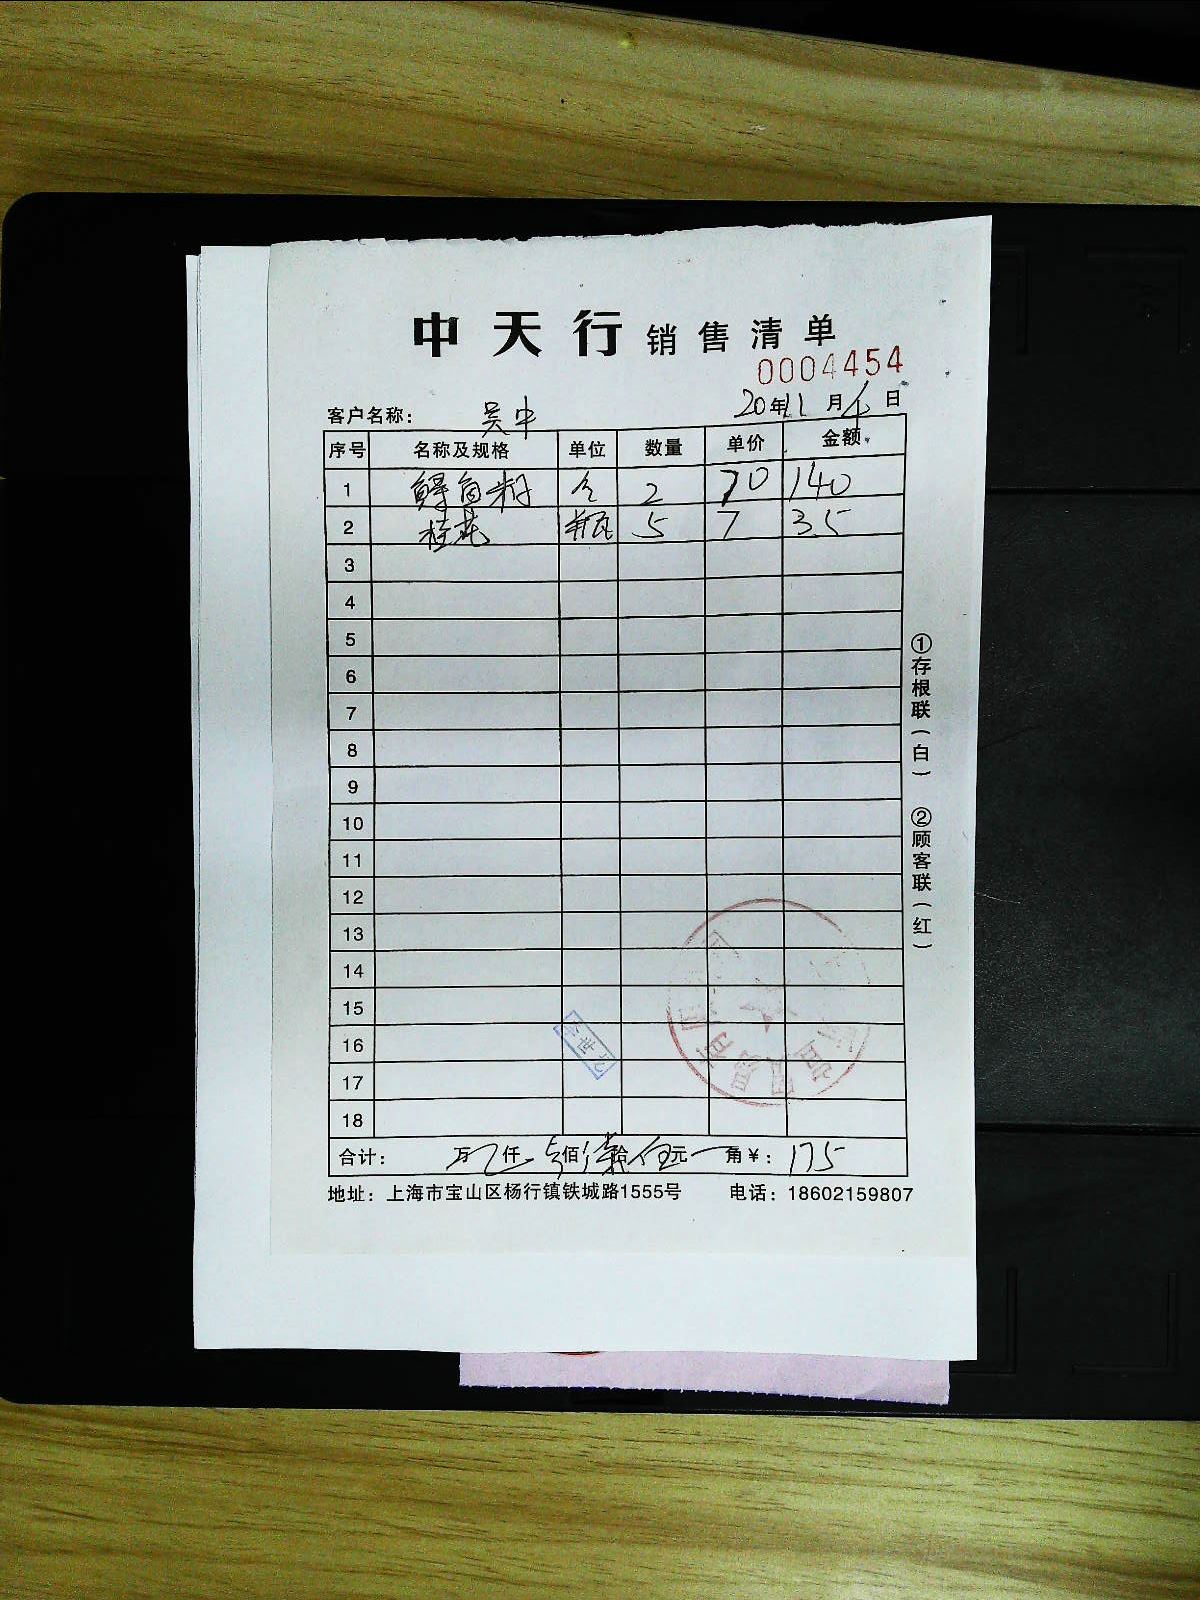 中天行 销售清单
0004454
客户名称： 吴中 20年11月6日
序号 名称及规格 单位 数量 单价 金额
1 鲟鱼籽 个 2 70 140
2 桂花 瓶 5 7 35
3
4
5
6
7
8
9
10
11
12
13
14
15
16
17
18
合计： 万 仟 壹佰柒拾伍元 角￥：175
地址：上海市宝山区杨行镇铁城路1555号 电话：18602159807
①存根联（白） ②顾客联（红）